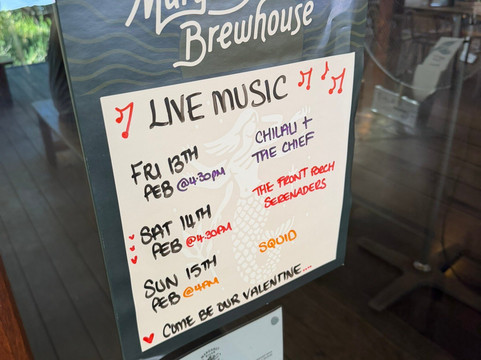 Brewhouse
LIVE MUSIC
FRI 13TH
FEB @4:30PM
CHILALI +
THE CHIEF
SAT 14TH
FEB @4:30PM
THE FRONT PORCH
SERENADERS
SUN 15TH
FEB @4PM
SQUID
COME BE OUR VALENTINE....